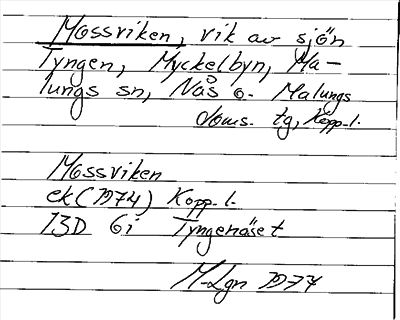 Mossviken, vik av sjön
Tyngen, Myckelbyn, Ma-
lungs sn, Nås o. Malungs
doms. tg, Kopp. l.
Mossviken
ek (1974) Kopp. l.
13D 6i Tyngenäset
M-Lgn 1977